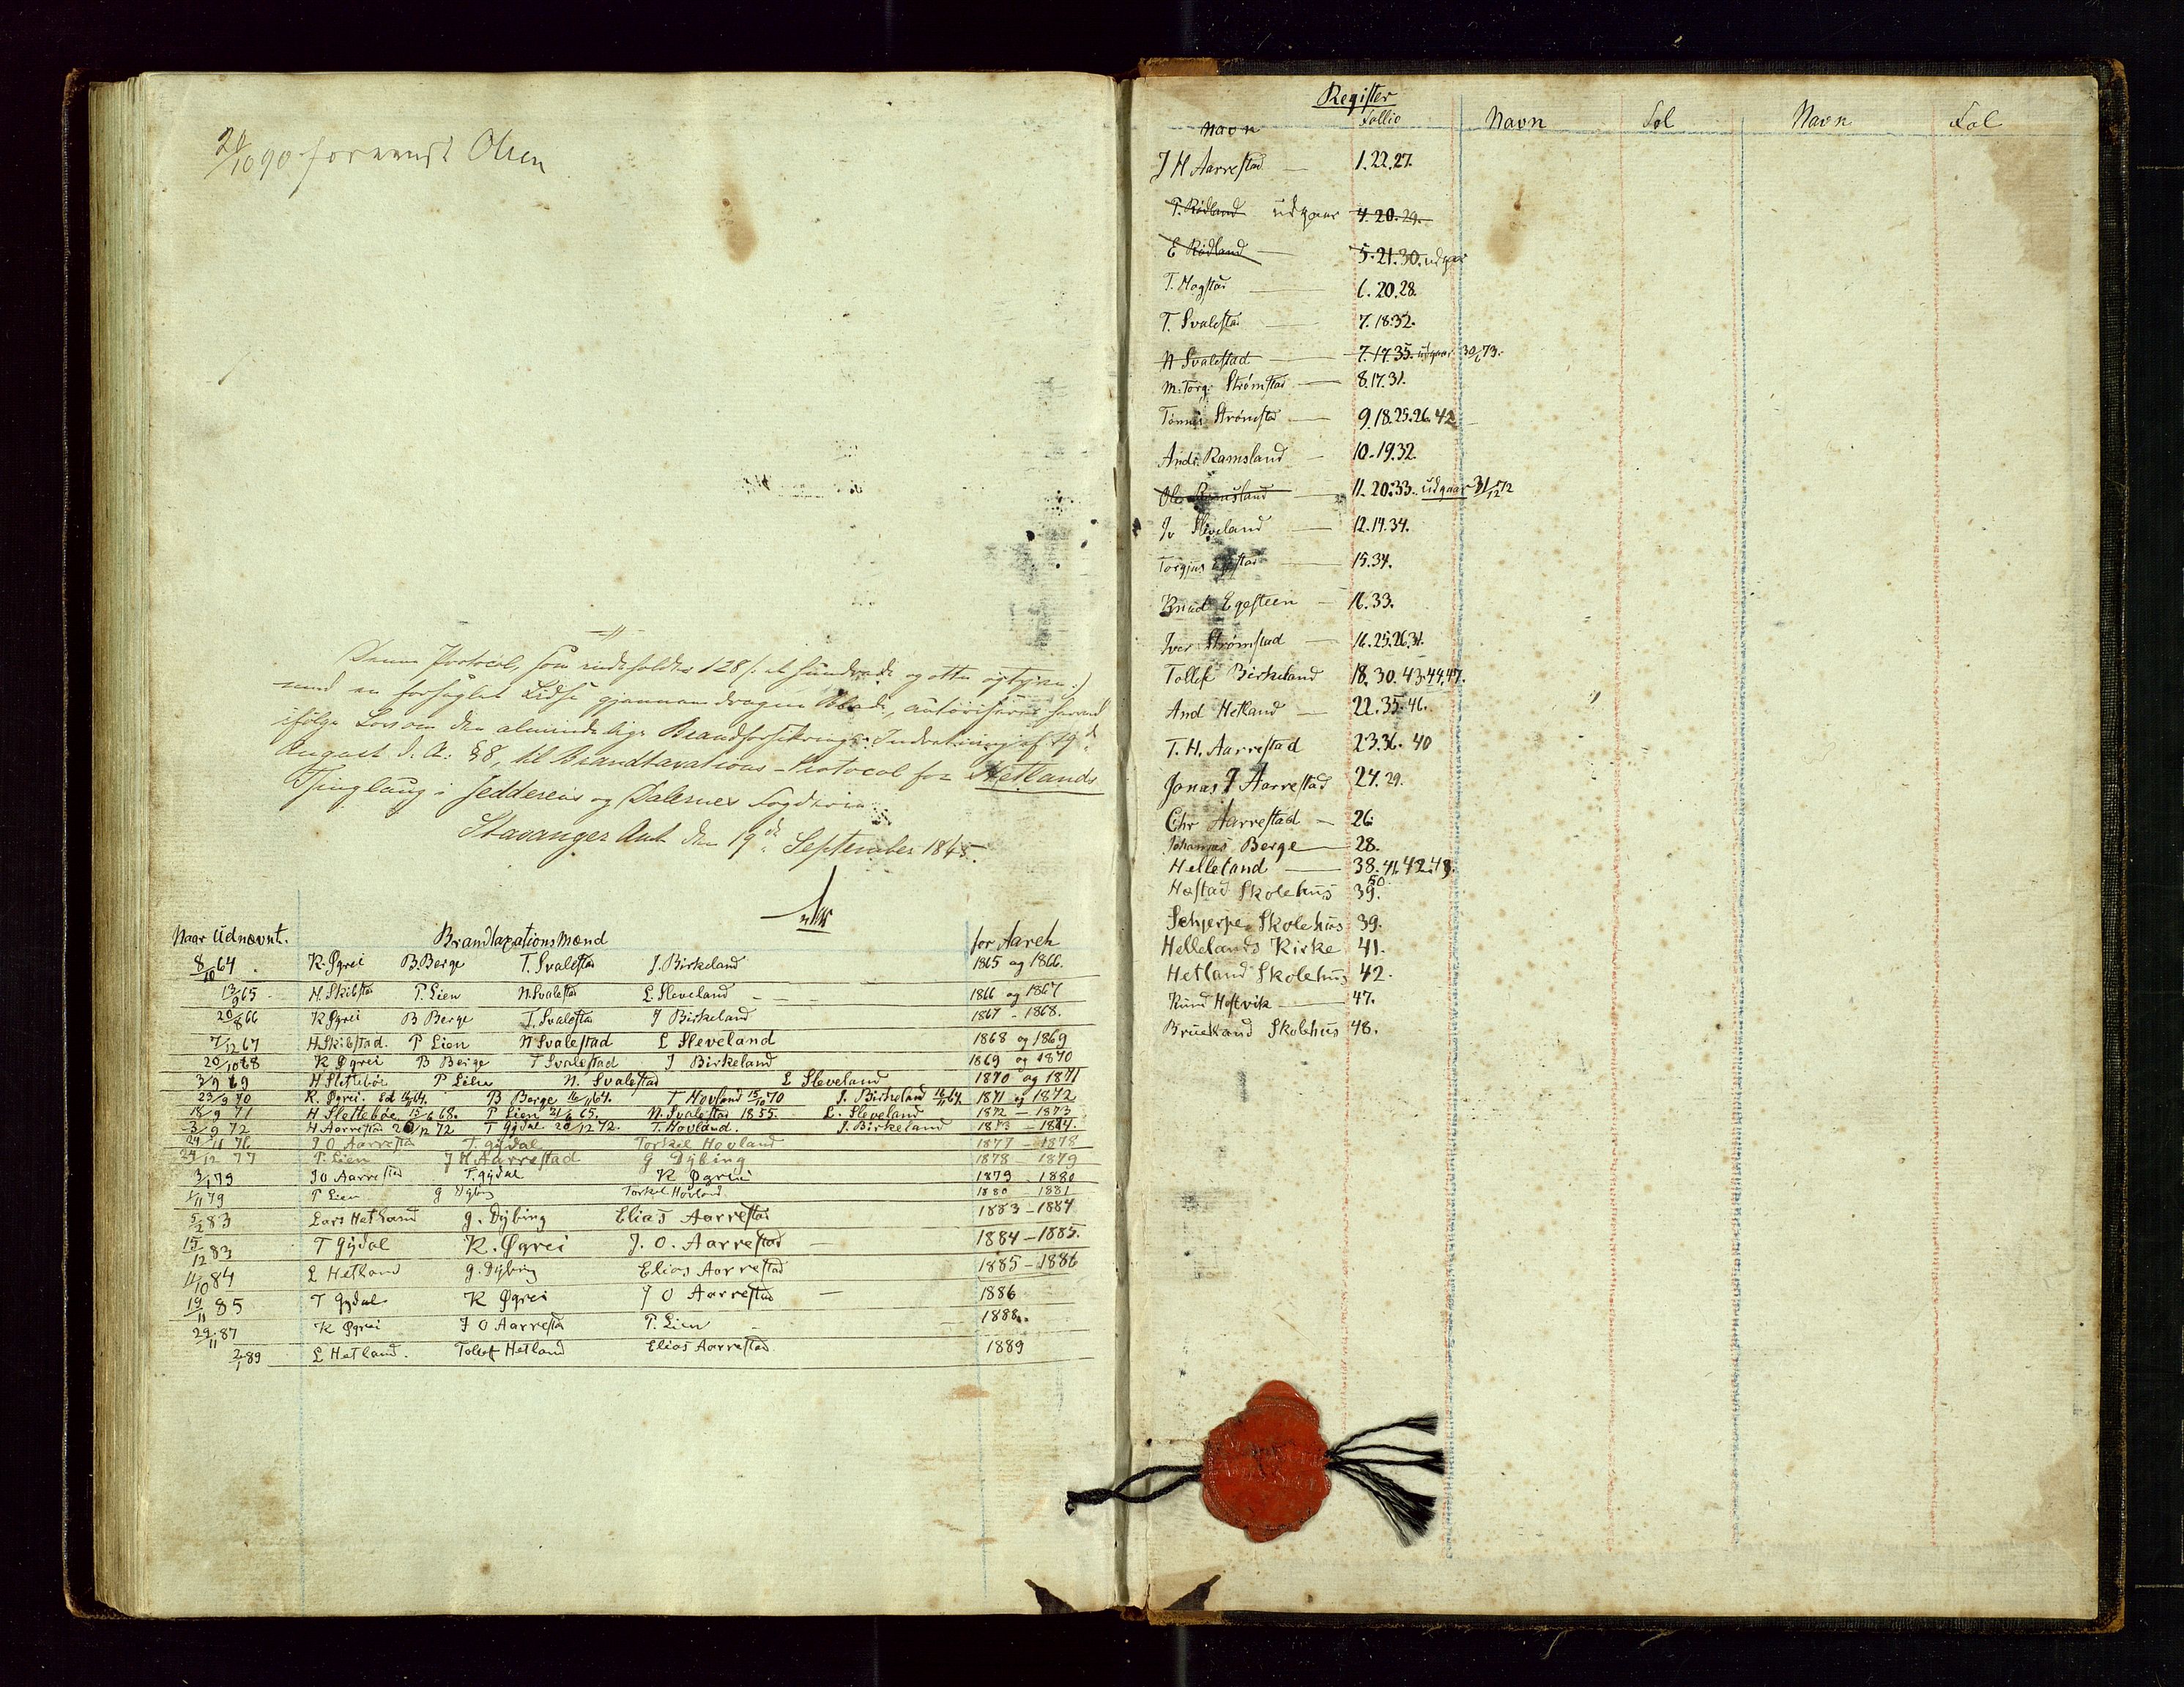 20/10 90 Olsen
Denne Protocol, som indeholder 128 /: et hundrede og otte og tyve :/
med en forseglet Lidse gjennemdragne Blade, autoriseres herved
ifølge Lov om den almindelige Brandforsikrings-Indretning af 19de
August d. A. §8, til Brandtaxations-Protocol for Hetlands
Thinglaug i Jedderens og Dalernes Fogderie.
Stavanger Amt den 19de September 1845.
Naar Udnævnt. Brandtaxations Mænd for Aareh
8/10 64. K. Øgrei B. Berge T. Svalesta J. Birkeland 1865 og 1866.
13/9 65 H. Skibsta P. Lien N. Svalesta L. Sleveland 1866 og 1867
20/8 66 K Øgrei B Berge T. Svalesta J Birkeland 1867 - 1868.
7/12 67 H. Skibstad. P Lien N Svalestad L Sleveland 1868 og 1869
20/10 68 K Øgrei B Berge T Svalestad J Birkeland 1869 og 1870
3/9 69 H Slettebøe P Lien N. Svalestad L Sleveland 1870 og 1871
23/9 70 K. Øgrei. Ed 16/11 64. B Berge 16/11 64. T Hovland 15/10 70 J. Birkeland 16/11 64. 1871 og 1872
18/9 71 H Slettebøe 15/6 68. P Lien 21/6 65. N. Svalestad 1855. L. Sleveland 1872 - 1873
3/9 72 H Aarrestad 20/12 72 T Gydal 20/12 72. T. Hovland. J. Birkeland 1873 - 1874.
24/11 76 J O Aarrestad T. Gydal Torkel Hovland 1877 - 1878
24/12 77 P. Lien J H Aarrestad G Dybing 1878 - 1879
3/1 79 JO Aarrestad T. Gydal K Øgrei 1879 - 1880
1/11 79 P Lien G Dybing Torkel Hovland 1880 1881
5/2 83 Lars Hetland G. Dybing Elias Aarrestad 1883 - 1884
15/12 83 T Gydal K. Øgrei J. O. Aarrestad 1884 - 1885.
4/10 84 L Hetland G. Dybing Elias Aarrestad 1885 - 1886
19/11 85 T Gydal K Øgrei J O Aarrestad 1886
29/11 87 K Øgrei J O Aarresta P. Lien 1888.
2/1 89 L Hetland. Tollef Hetland Elias Aarrestad 1889
Register
Navn Follio Navn Fol Navn Fol
J H Aarrestad 1. 22. 27.
T. Rödland udgaar 4. 20. 29.
E Rödland 5. 21. 30. udgaar
T. Mogstad 6. 20. 28.
T. Svalesta 7. 18. 32.
N Svalestad 7. 17. 35. udgaar 30/6 73.
M. Torg. Strömstad 8. 17. 31.
Tönnes Strömstad 9. 18. 25. 26. 42
Andr. Ramsland 10. 19. 32.
Ole Ramsland 11. 20. 33. udgaar 31/12 72
Jv Sleveland 12. 19. 34.
Torgjus 15. 34.
Knud Egesteen 16. 33.
Iver Strömstad 16. 25. 26. 31.
Tollef Birkeland 18. 30. 43. 44. 47.
And Hetland 22. 35. 46.
T. H. Aarrestad 23. 36. 40
Jonas J Aarrestad 24. 29.
Chr Aarrestad 26.
Johannes Berge 28.
Helleland 38. 41. 42. 48.
50.
Hæstad Skolehus 39.
Schjerpe Skolehus 39.
Hellelands Kirke 41.
Hetland Skolehus 42.
Knud Hæstvik 47.
Brueland Skolehus 48.